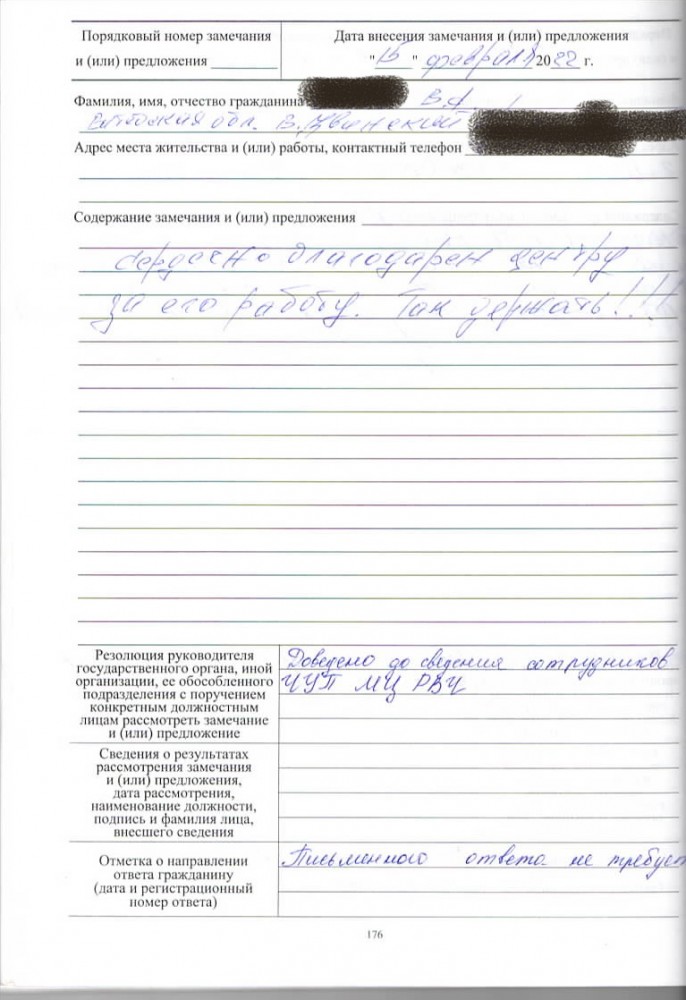 Порядковый номер замечания
и (или) предложения
Дата внесения замечания и (или) предложения
"15" февраля 2022 г.
Фамилия, имя, отчество гражданина В.А
обл. В.Двинский
Адрес места жительства и (или) работы, контактный телефон
Содержание замечания и (или) предложения
Сердечно благодарен центру
за его работу. Так держать!!!
Резолюция руководителя
государственного органа, иной
организации, ее обособленного
подразделения с поручением
конкретным должностным
лицам рассмотреть замечание
и (или) предложение
Доведено до сведения сотрудников
ЧУП МЦ РВЦ
Сведения о результатах
рассмотрения замечания
и (или) предложения,
дата рассмотрения,
наименование должности,
подпись и фамилия лица,
внесшего сведения
Отметка о направлении
ответа гражданину
(дата и регистрационный
номер ответа)
Письменного ответа не требует
176